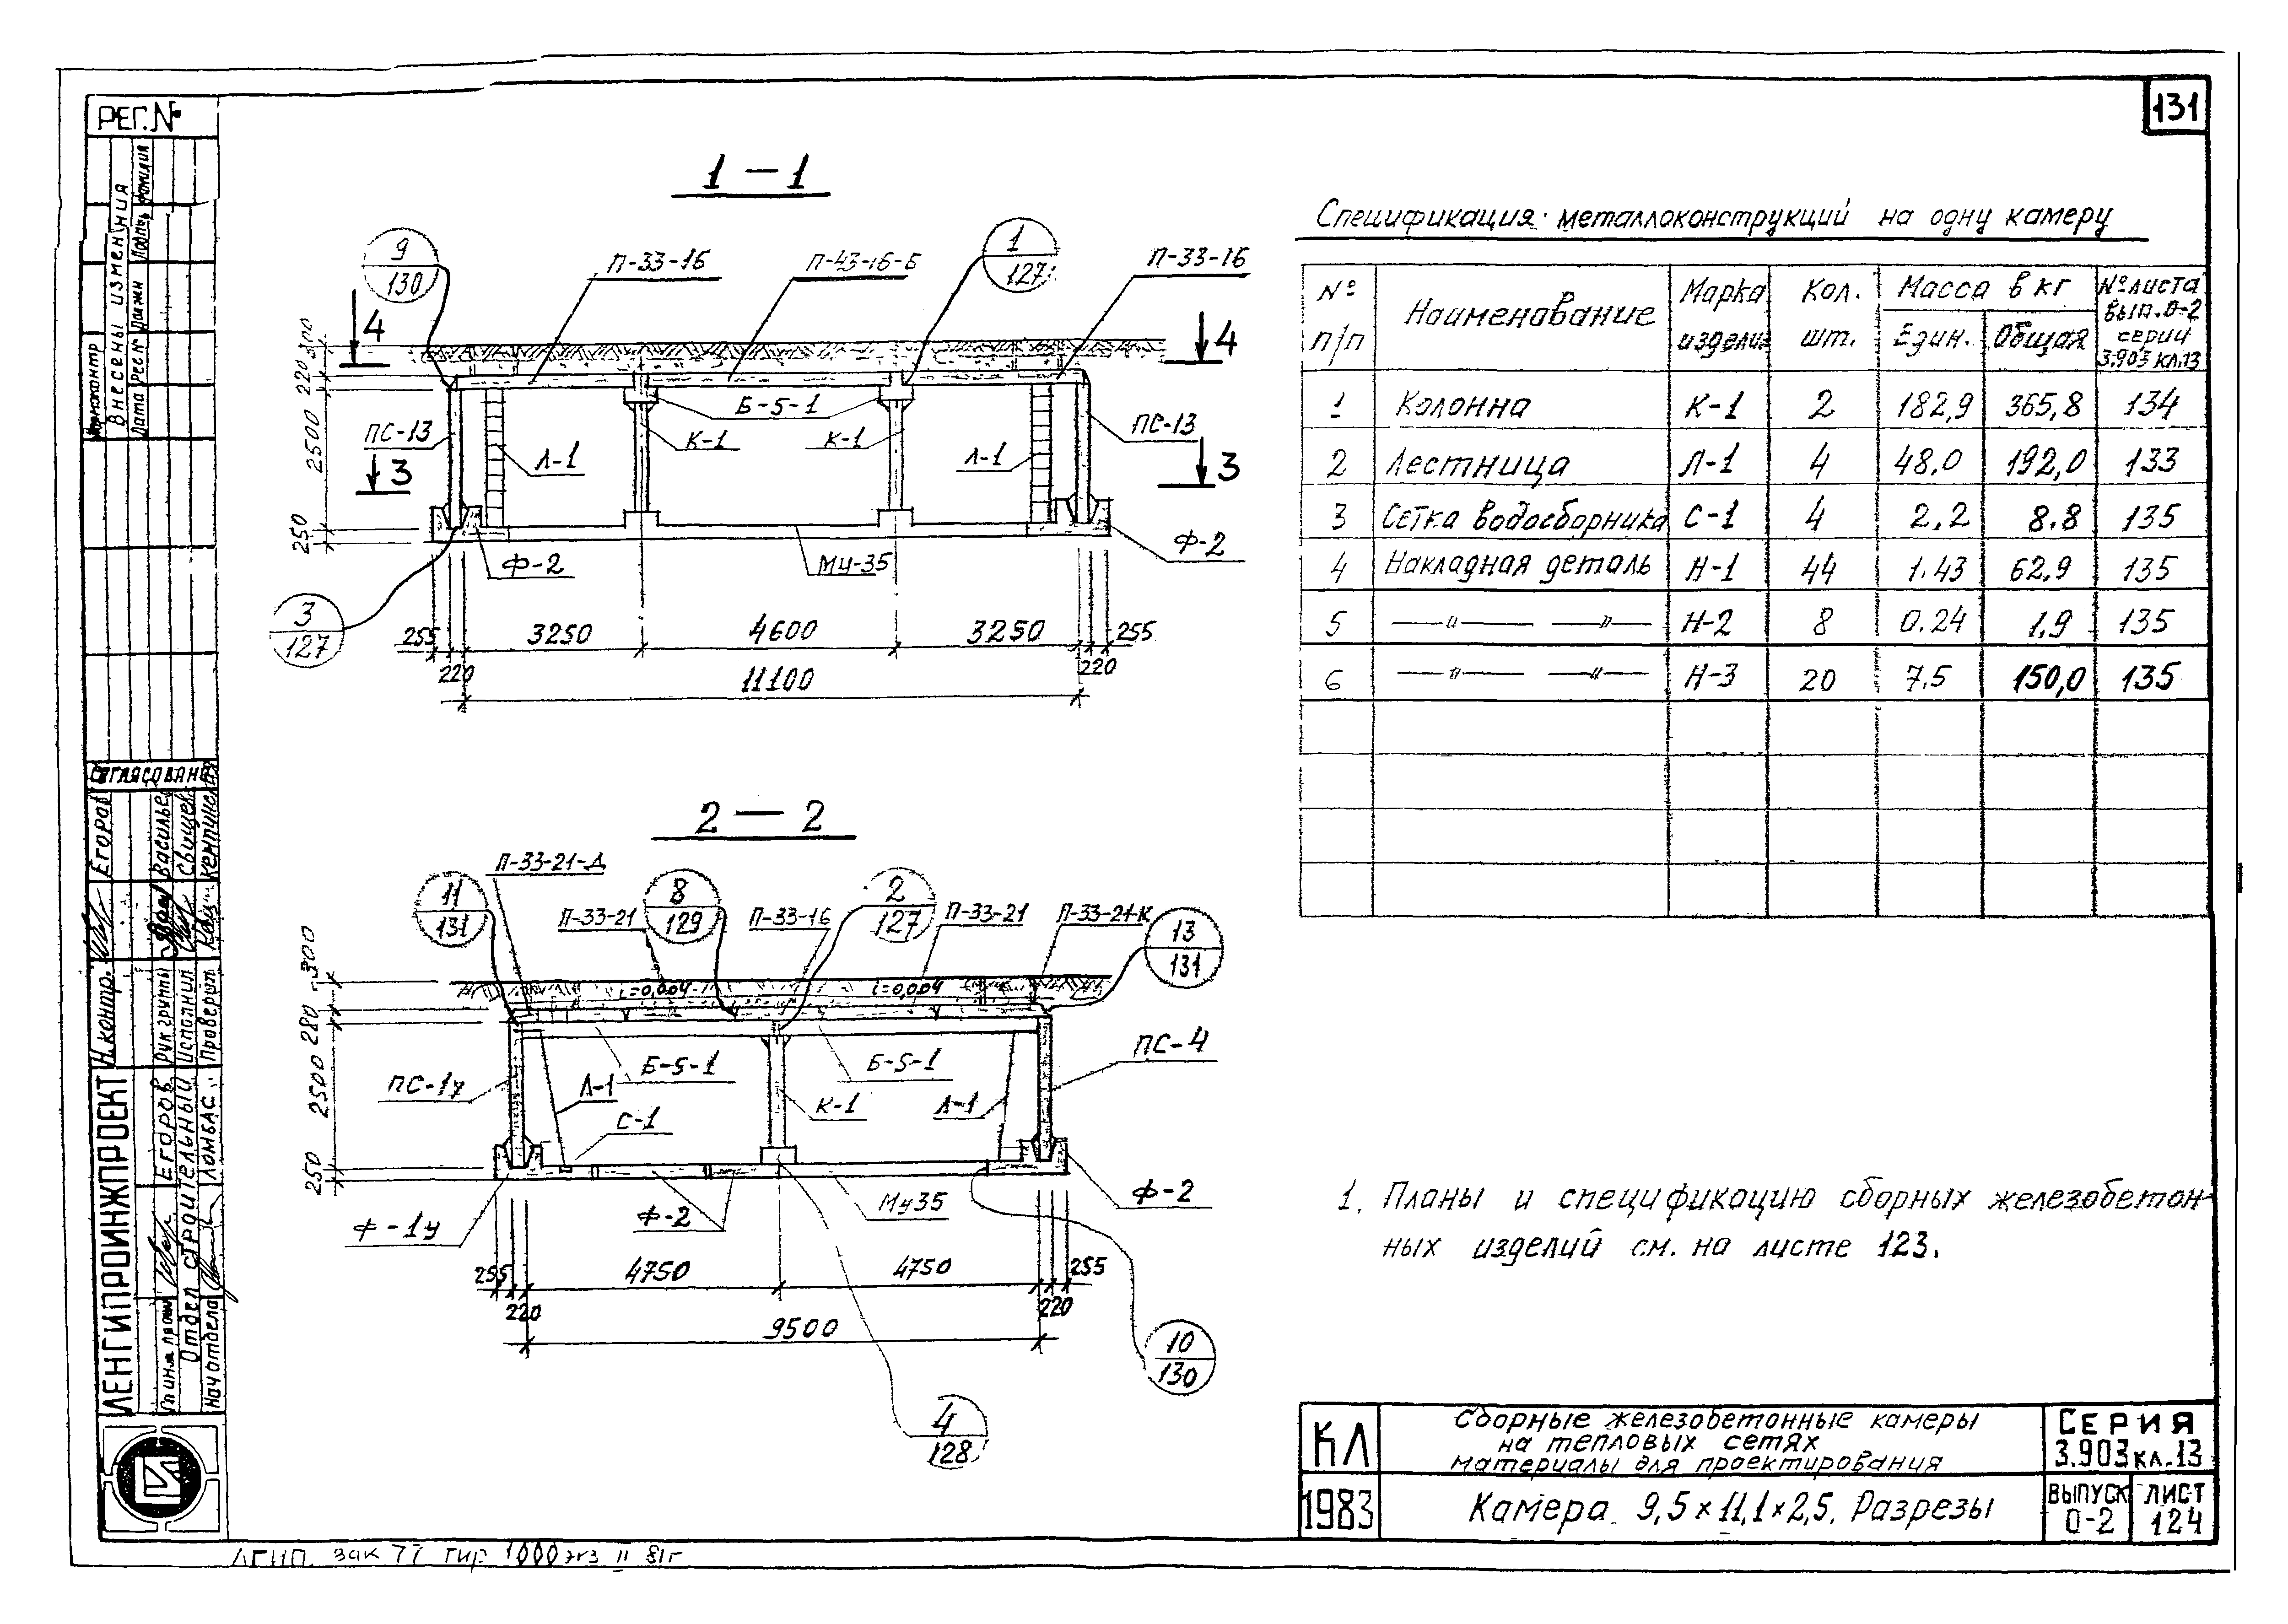 131
РЕГ.№
Внесены изменения
Дата Рег№ Должн Подпь Фамилия
Согласовано
Егоров
Н.контр.
Рук группы
Исполнил
Проверил
ЛЕНГИПРОИНЖПРОЕКТ
Отдел строительный
Нач отдела
Егоров
Ломбас
1 — 1
9
130
П-33-16
П-43-16-Б
1
127
П-33-16
4
4
300
220
2500
250
ПС-13
Л-1
К-1
Б-5-1
К-1
Л-1
ПС-13
3
3
Ф-2
МЧ-35
Ф-2
3
127
255
3250
4600
3250
255
220
11100
220
2 — 2
П-33-21-Д
11
131
П-33-21
8
129
П-33-16
2
127
П-33-21
П-33-21-К
13
131
i=0,004
i=0,004
300
280
2500
250
ПС-1у
Б-5-1
Б-5-1
ПС-4
Л-1
С-1
К-1
Л-1
Ф-1у
Ф-2
Му35
Ф-2
255
4750
4750
255
220
9500
220
10
130
4
128
Спецификация металлоконструкций на одну камеру
№ п/п
Наименование
Марка изделия
Кол. шт.
Масса в кг
Един.
Общая
№ листа вып.0-2 серии 3.903 кл.13
1 Колонна К-1 2 182,9 365,8 134
2 Лестница Л-1 4 48,0 192,0 133
3 Сетка водосборника С-1 4 2,2 8.8 135
4 Накладная деталь Н-1 44 1.43 62,9 135
5 —"— —"— Н-2 8 0.24 1,9 135
6 —"— —"— Н-3 20 7.5 150,0 135
1. Планы и спецификацию сборных железобетон-
ных изделий см. на листе 123.
КЛ
1983
Сборные железобетонные камеры
на тепловых сетях
материалы для проектирования
Камера 9,5×11,1×2,5. Разрезы
СЕРИЯ
3.903 кл.13
ВЫПУСК
0-2
ЛИСТ
124
ЛГИП. зак 77 тир 1000 экз II 81г